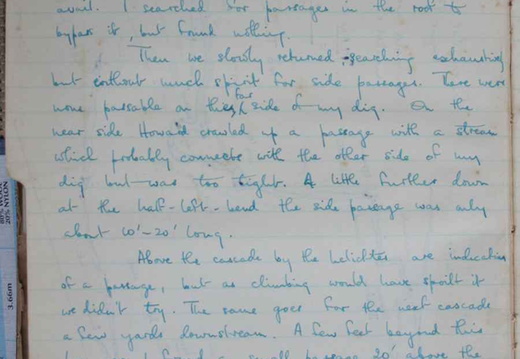 avail. I searched for passages in the roof to
bypass it, but found nothing.
Then we slowly returned, searching exhaustively
but without much spirit for side passages. There were
none passable on this far side of my dig. On the
near side Howard crawled up a passage with a stream
which probably connects with the other side of my
dig but was too tight. A little further down
at the half-left-bend the side passage was only
about 10'-20' long.
Above the cascade by the helictites are indications
of a passage, but as climbing would have spoilt it
we didn't try. The same goes for the next cascade
a few yards downstream. A few feet beyond this
small passage 20' above the
20% NYLON
3.66m